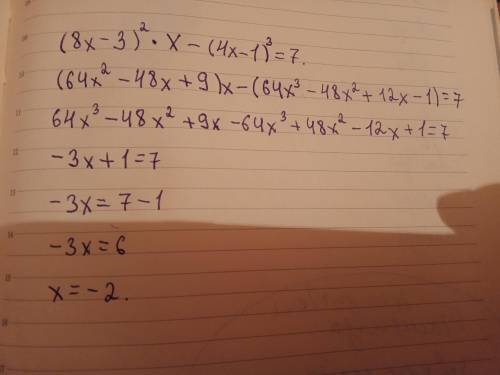 (8x-3)²·x-(4x-1)³=7.
(64x²-48x+9)x-(64x³-48x²+12x-1)=7
64x³-48x²+9x-64x³+48x²-12x+1=7
-3x+1=7
-3x=7-1
-3x=6
x=-2.